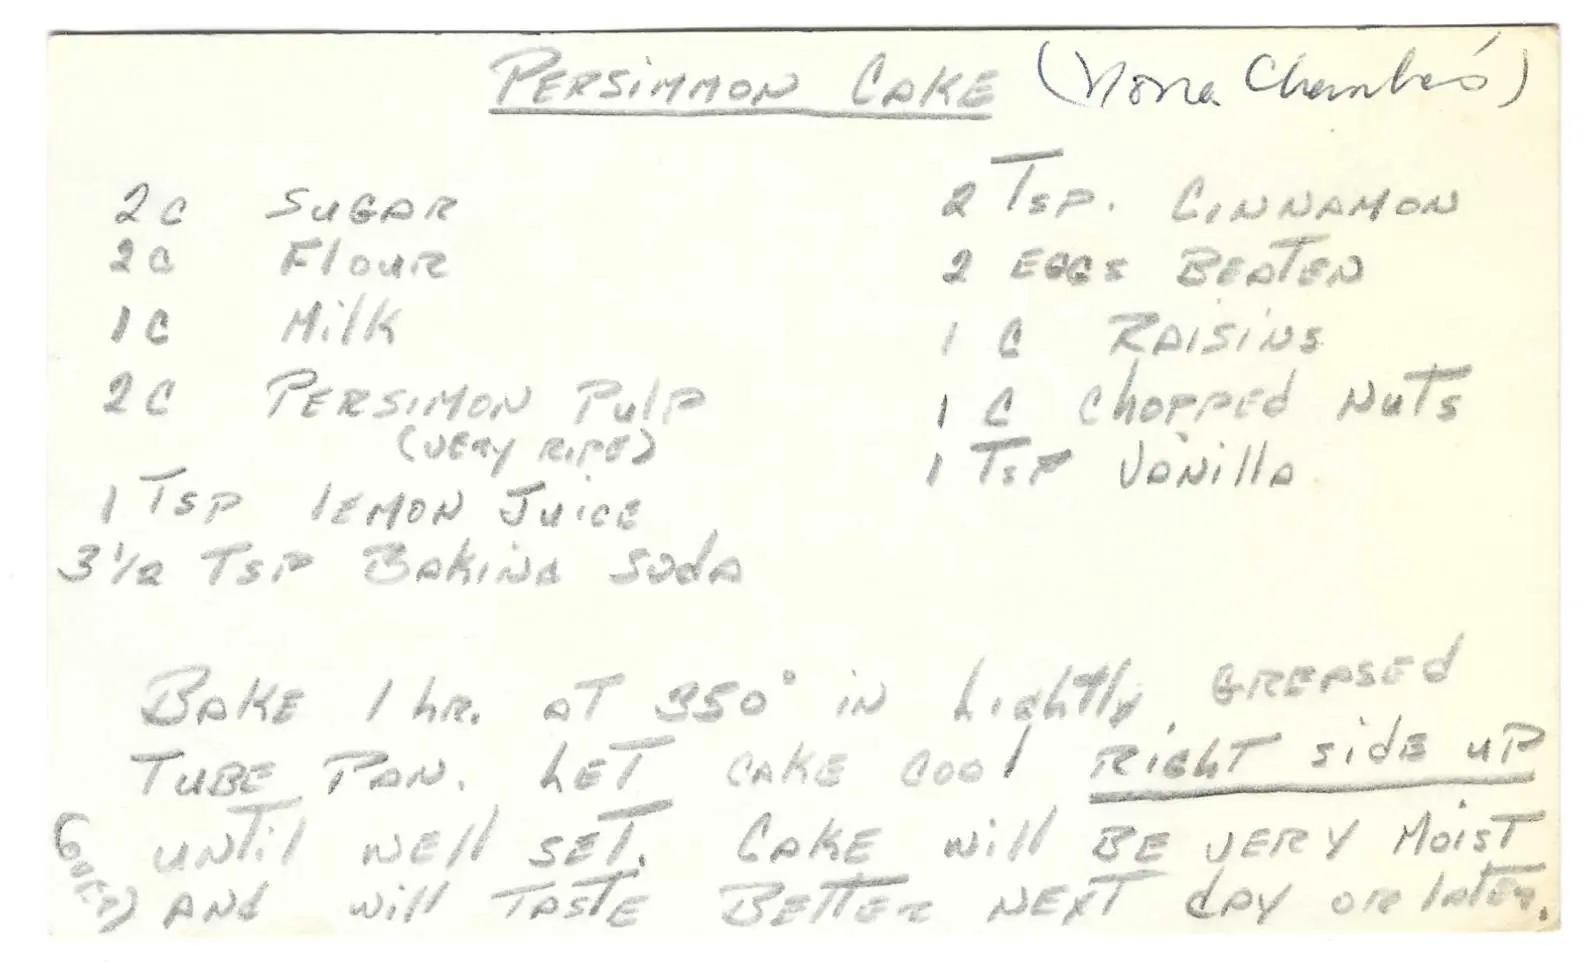 PERSIMMON CAKE (Nona Chambers)
2C SUGAR
2C FlOUR
1C MilK
2C PERSIMON PulP
(VERY RIPE)
1 TSP lEMON JUiCE
3 1/2 TSP BAKiNG SodA
2 TSP. CiNNAMON
2 EGGS BEATEN
1 C RAISINS
1 C ChOPPEd NuTS
1 TSP VANillA
BAKE 1 hR. AT 350° iN LighTly GREASEd
TUBE PAN. LET CAKE COOl RighT SidE uP
uNTil WEll SET. CAKE will BE VERY MOiST
ANd will TASTE BETTER NEXT dAY OR lATER.